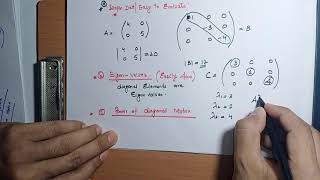 ④ Det | Easy to Evaluate
A = ( 4 0
0 5 )
| 4 0
0 5 | = 20
0 0
0 -3 0
0 0 -4 = B
|B| = 12
Eigen-values - (Easily down)
diagonal Elements are
Eigen values.
C = ( 3 0 0
0 2 0
0 0 4 )
λ₁ = 3
λ₂ = 2
λ₃ = 4
Power of diagonal matrix